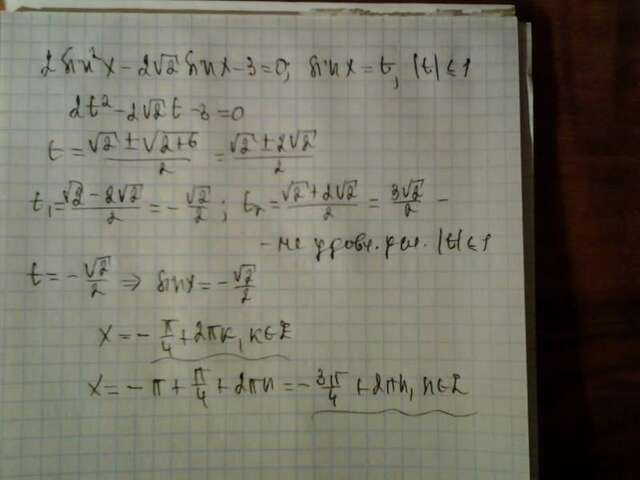 2sin²x - 2√2 sinx - 3 = 0; sinx = t, |t| ≤ 1
2t² - 2√2 t - 3 = 0
t = (√2 ± √(2+6))/2 = (√2 ± 2√2)/2
t₁ = (√2 - 2√2)/2 = -√2/2; t₂ = (√2 + 2√2)/2 = 3√2/2 -
- не удовл. усл. |t| ≤ 1
t = -√2/2 ⇒ sinx = -√2/2
x = -π/4 + 2πk, k∈Z
x = -π + π/4 + 2πn = -3π/4 + 2πn, n∈Z